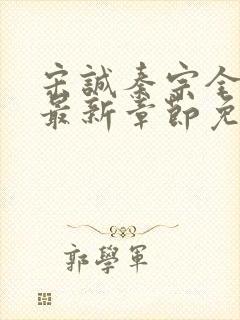 宋誠秦宗全
最新章節免
郭學軍